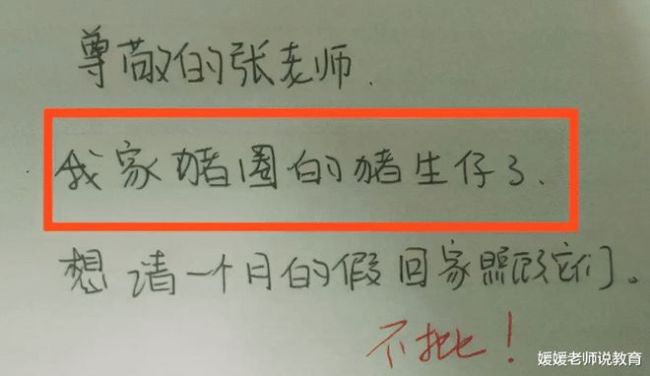 尊敬的张老师.
我家猪圈的猪生仔了.
想请一个月的假回家照顾它们。
不批！
媛媛老师说教育